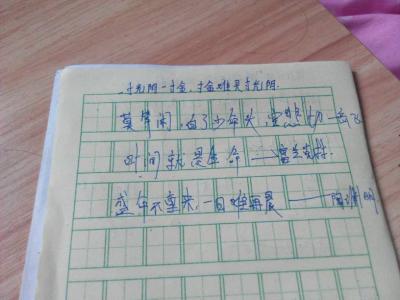 一寸光阴一寸金,寸金难买寸光阴.
莫等闲,白了少年头,空悲切—岳飞
时间就是生命——富兰克林
盛年不重来,一日难再晨——陶渊明